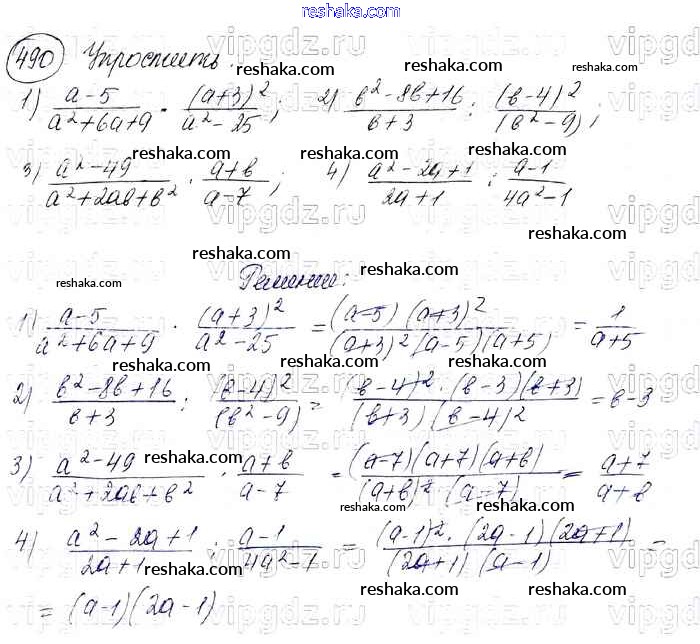 reshaka.com
490 Упростить:
1) (a-5)/(a²+6a+9) · (a+3)²/(a²-25); 2) (в²-8в+16)/(в+3) : (в-4)²/(в²-9);
3) (a²-49)/(a²+2aв+в²) · (a+в)/(a-7); 4) (a²-2a+1)/(2a+1) : (a-1)/(4a²-1)
Решение:
1) (a-5)/(a²+6a+9) · (a+3)²/(a²-25) = (a-5)(a+3)²/((a+3)²(a-5)(a+5)) = 1/(a+5)
2) (в²-8в+16)/(в+3) : (в-4)²/(в²-9) = (в-4)²·(в-3)(в+3)/((в+3)(в-4)²) = в-3
3) (a²-49)/(a²+2aв+в²) · (a+в)/(a-7) = (a-7)(a+7)(a+в)/((a+в)²(a-7)) = (a+7)/(a+в)
4) (a²-2a+1)/(2a+1) : (a-1)/(4a²-1) = (a-1)²·(2a-1)(2a+1)/((2a+1)(a-1)) =
= (a-1)(2a-1)